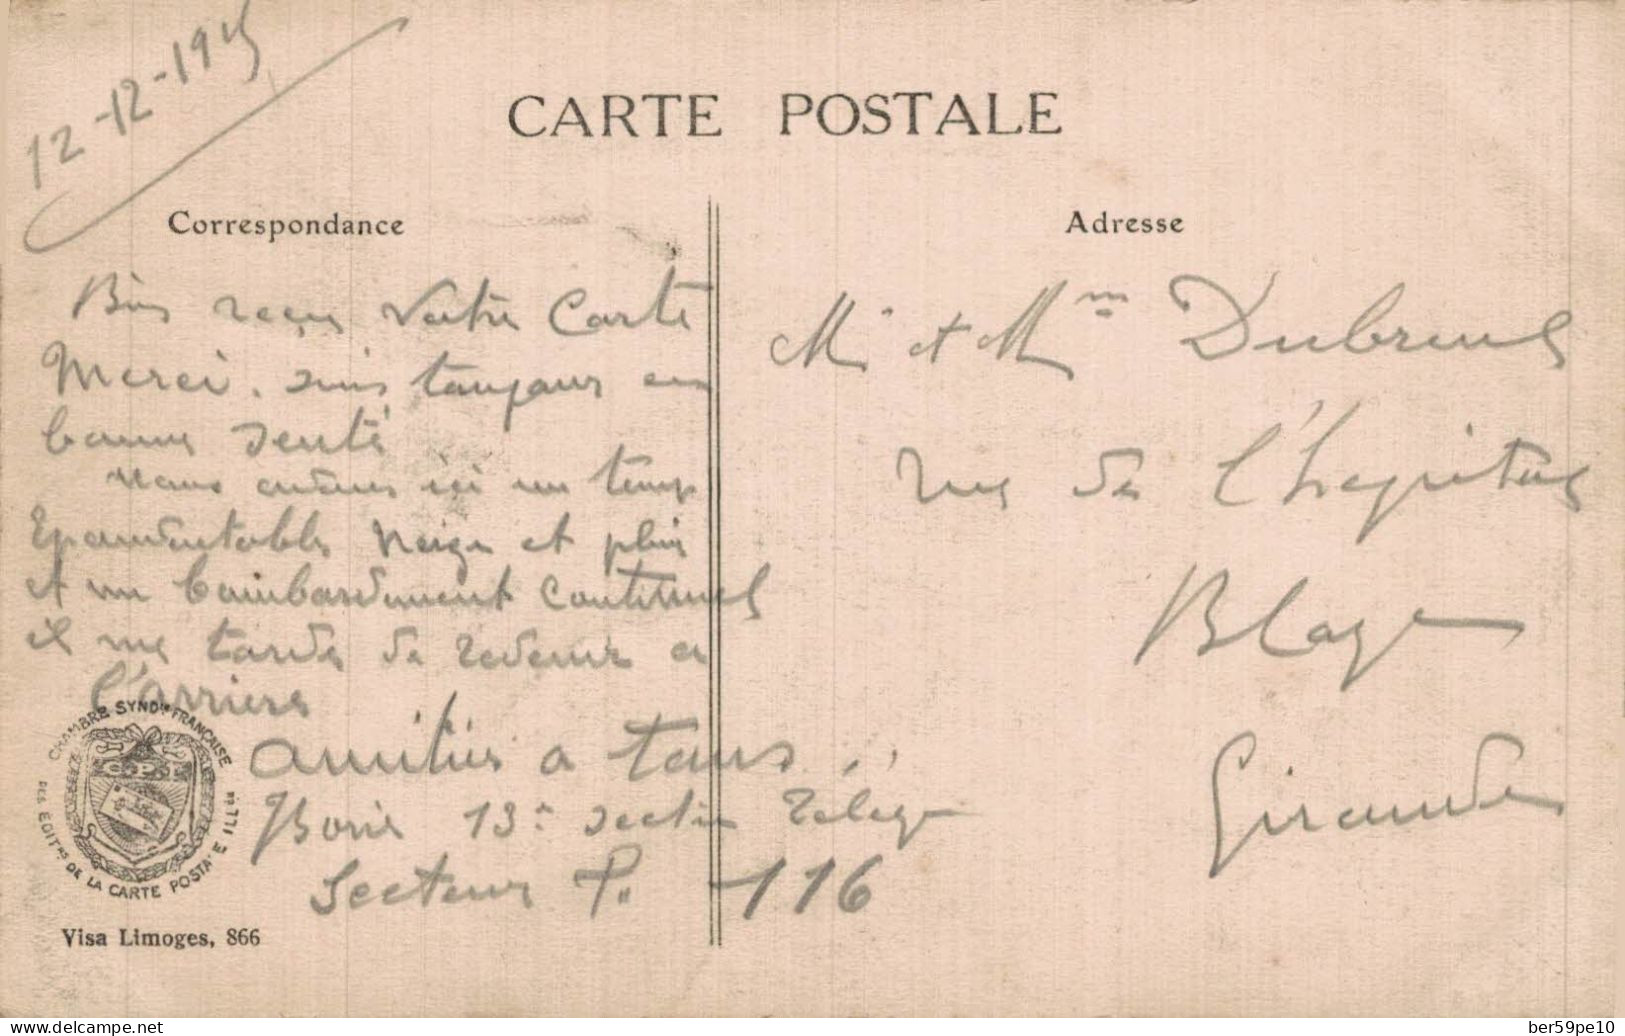 12-12-1915
CARTE POSTALE
Correspondance
Bien reçu votre Carte
Merci. suis toujours en
bonne senté
nous avons ici un temps
Epouventable Neige et pluie
et un bombardement continuel
il me tarde de revenir a
l'arriere
amitiés a tous
Borie 13e section
Secteur P. 116
CHAMBRE SYNDle FRANÇAISE
DES EDITRS DE LA CARTE POSTALE ILLÉE
Visa Limoges, 866
Adresse
Mr et Mme Dubreuil
rue de l'hopital
Blaye
Gironde
www.delcampe.net
ber59pe10